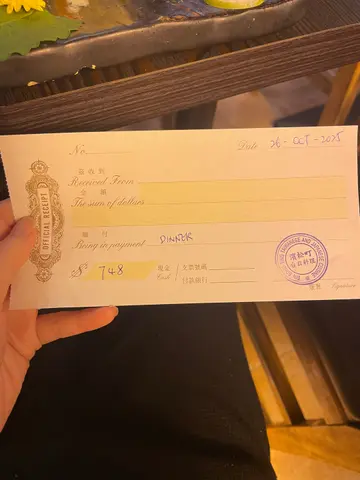 No.
Date 26-OCT-2025
茲收到
Received From
金額
The sum of dollars
OFFICIAL RECEIPT
繳付
Being in payment DINNER
№ 748
現金 Cash
支票號碼
付款銀行
濱松町
日本料理
簽署 Signature